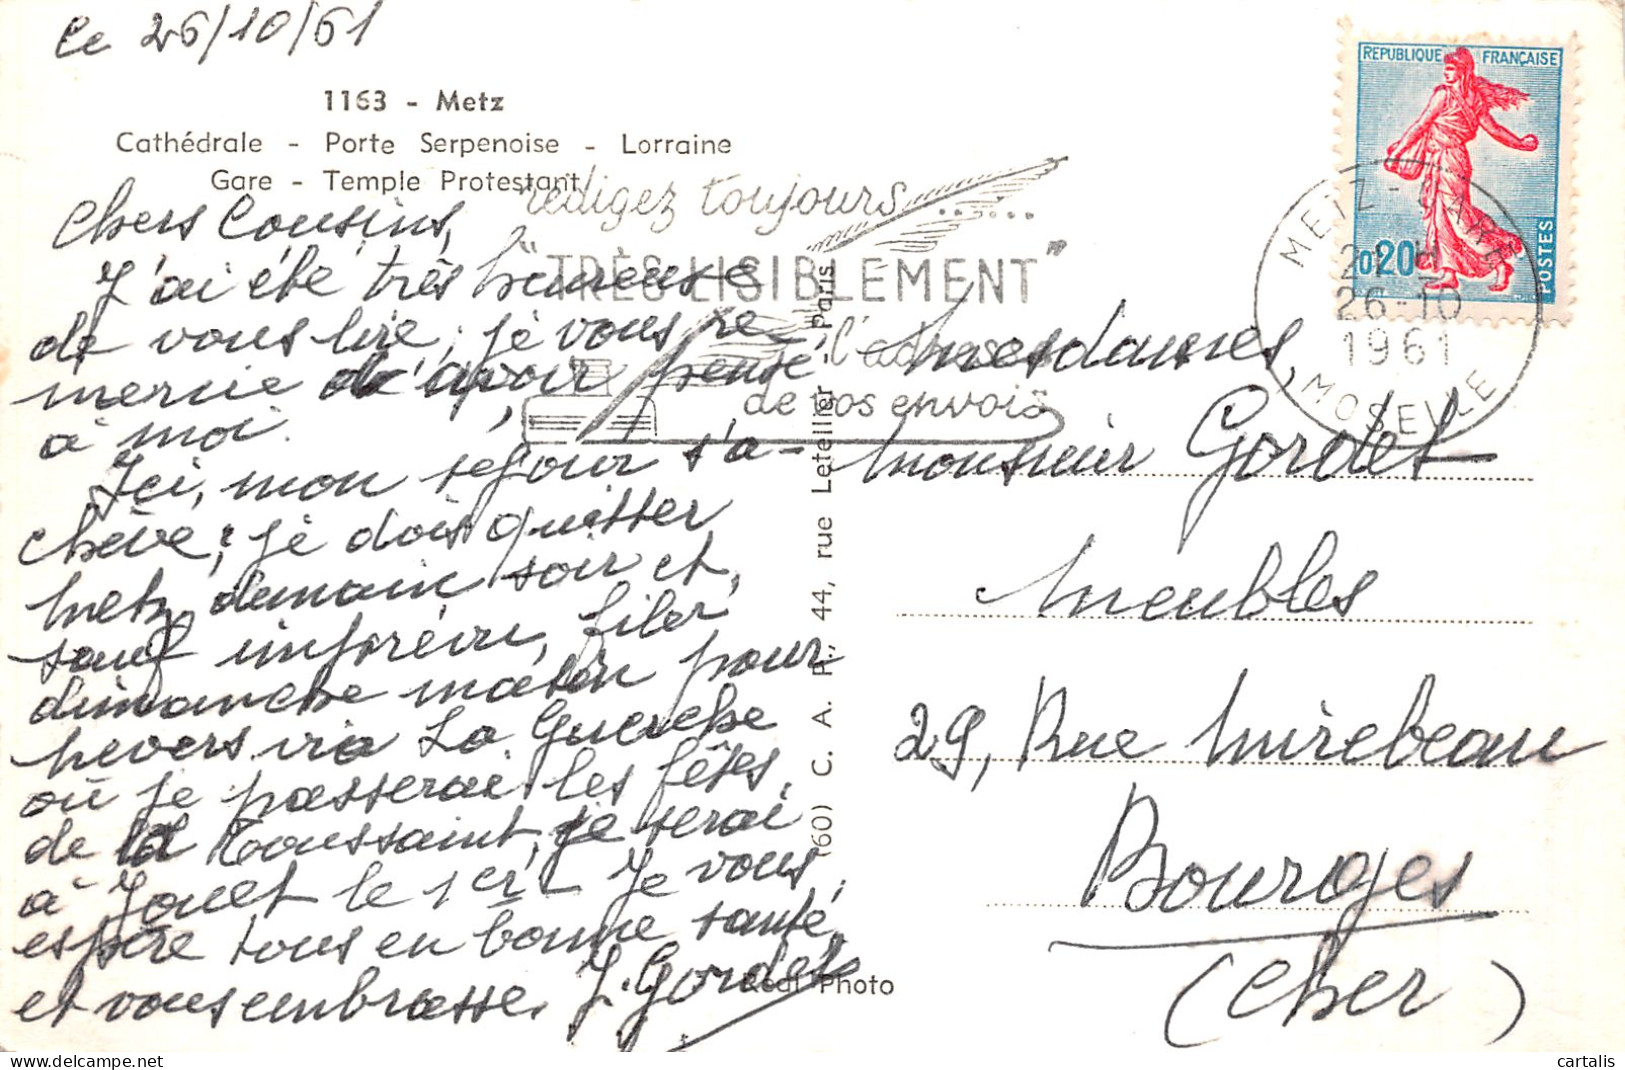 Le 26/10/61
1163 - Metz
Cathédrale - Porte Serpenoise - Lorraine
Gare - Temple Protestant
Chers Cousins,
J'ai été très heureuse
de vous lire, je vous re
mercie d'avoir pensé
à moi.
Ici, mon séjour s'a-
chève; je dois quitter
Metz demain soir et,
sauf imprévu, filer
dimanche matin pour
Nevers via La Guerche
où je passerai les fêtes
de la Toussaint, je serai
à Jouet le 1er - Je vous
espère tous en bonne santé
et vous embrasse. J. Gordet
rédigez toujours......
"TRÈS LISIBLEMENT"
l'adresse
de vos envois
(60) C. A. P., 44, rue Letellier, Paris
Real Photo
REPUBLIQUE FRANÇAISE
0,20
POSTES
METZ-GARE
26-10
1961
MOSELLE
Mesdames,
Monsieur Gordet
Meubles
29, Rue Mirebeau
Bourges
(Cher)
cartalis